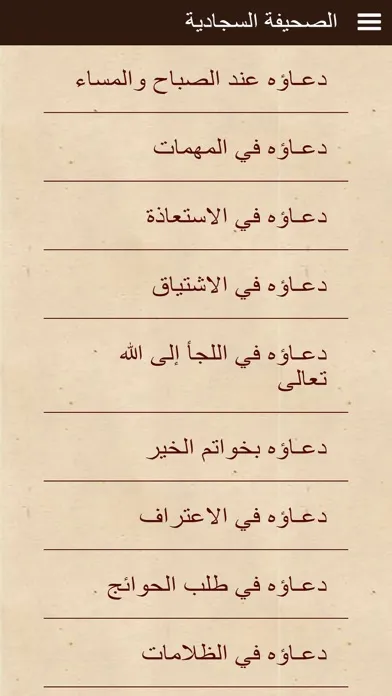 الصحيفة السجادية
دعـاؤه عند الصباح والمساء
دعـاؤه في المهمات
دعـاؤه في الاستعاذة
دعـاؤه في الاشتياق
دعـاؤه في اللجأ إلى الله
تعالى
دعـاؤه بخواتم الخير
دعـاؤه في الاعتراف
دعـاؤه في طلب الحوائج
دعـاؤه في الظلامات